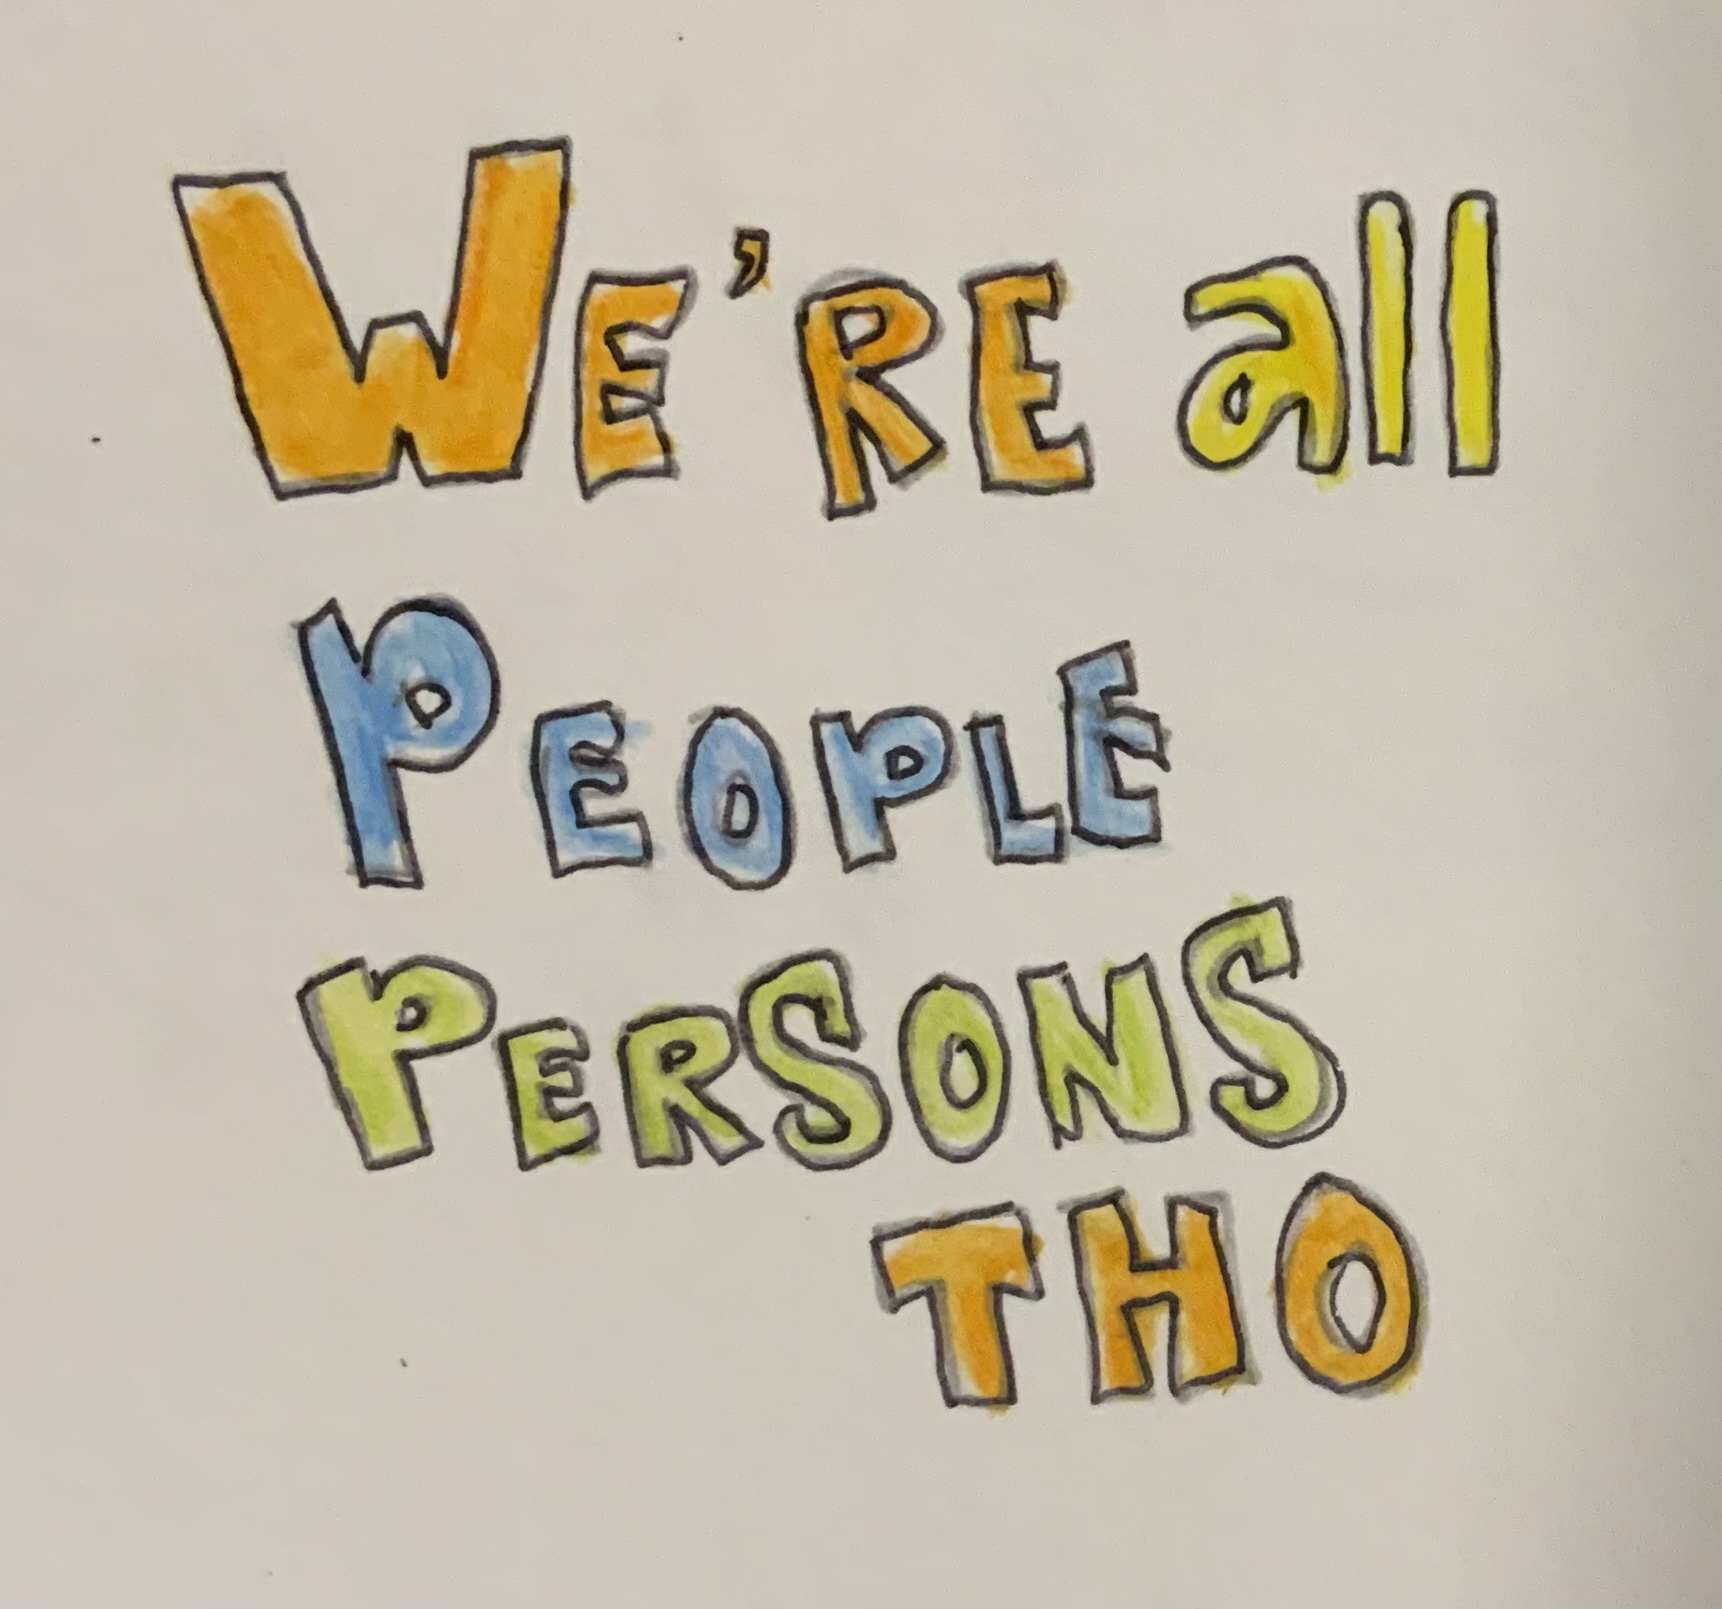 WE'RE all
PEOPLE
PERSONS
THO